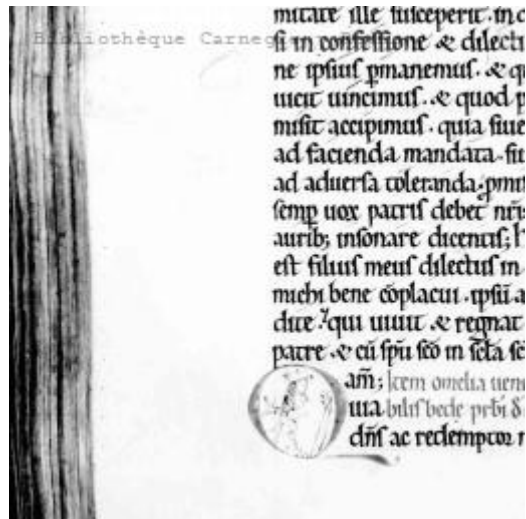 mitate ille susceperit. in c
Bibliothèque Carneg
si in confessione & dilecti
ne ipsius p̄manemus. & q
uicit uincimus. & quod p
misit accipimus. quia siue
ad facienda mandata. siu
ad aduersa toleranda. p̄mis
semp̄ uox patris debet nr̄is
aurib; insonare dicentis; h
est filius meus dilectus in
michi bene cōplacui. ipsū a
dite. qui uiuit & regnat
patre & cū sp̄u sc̄o in sc̄la sc̄
am̄; Item omelia uene
Q uia bilis bede prb̄i
dn̄s ac redemptor n